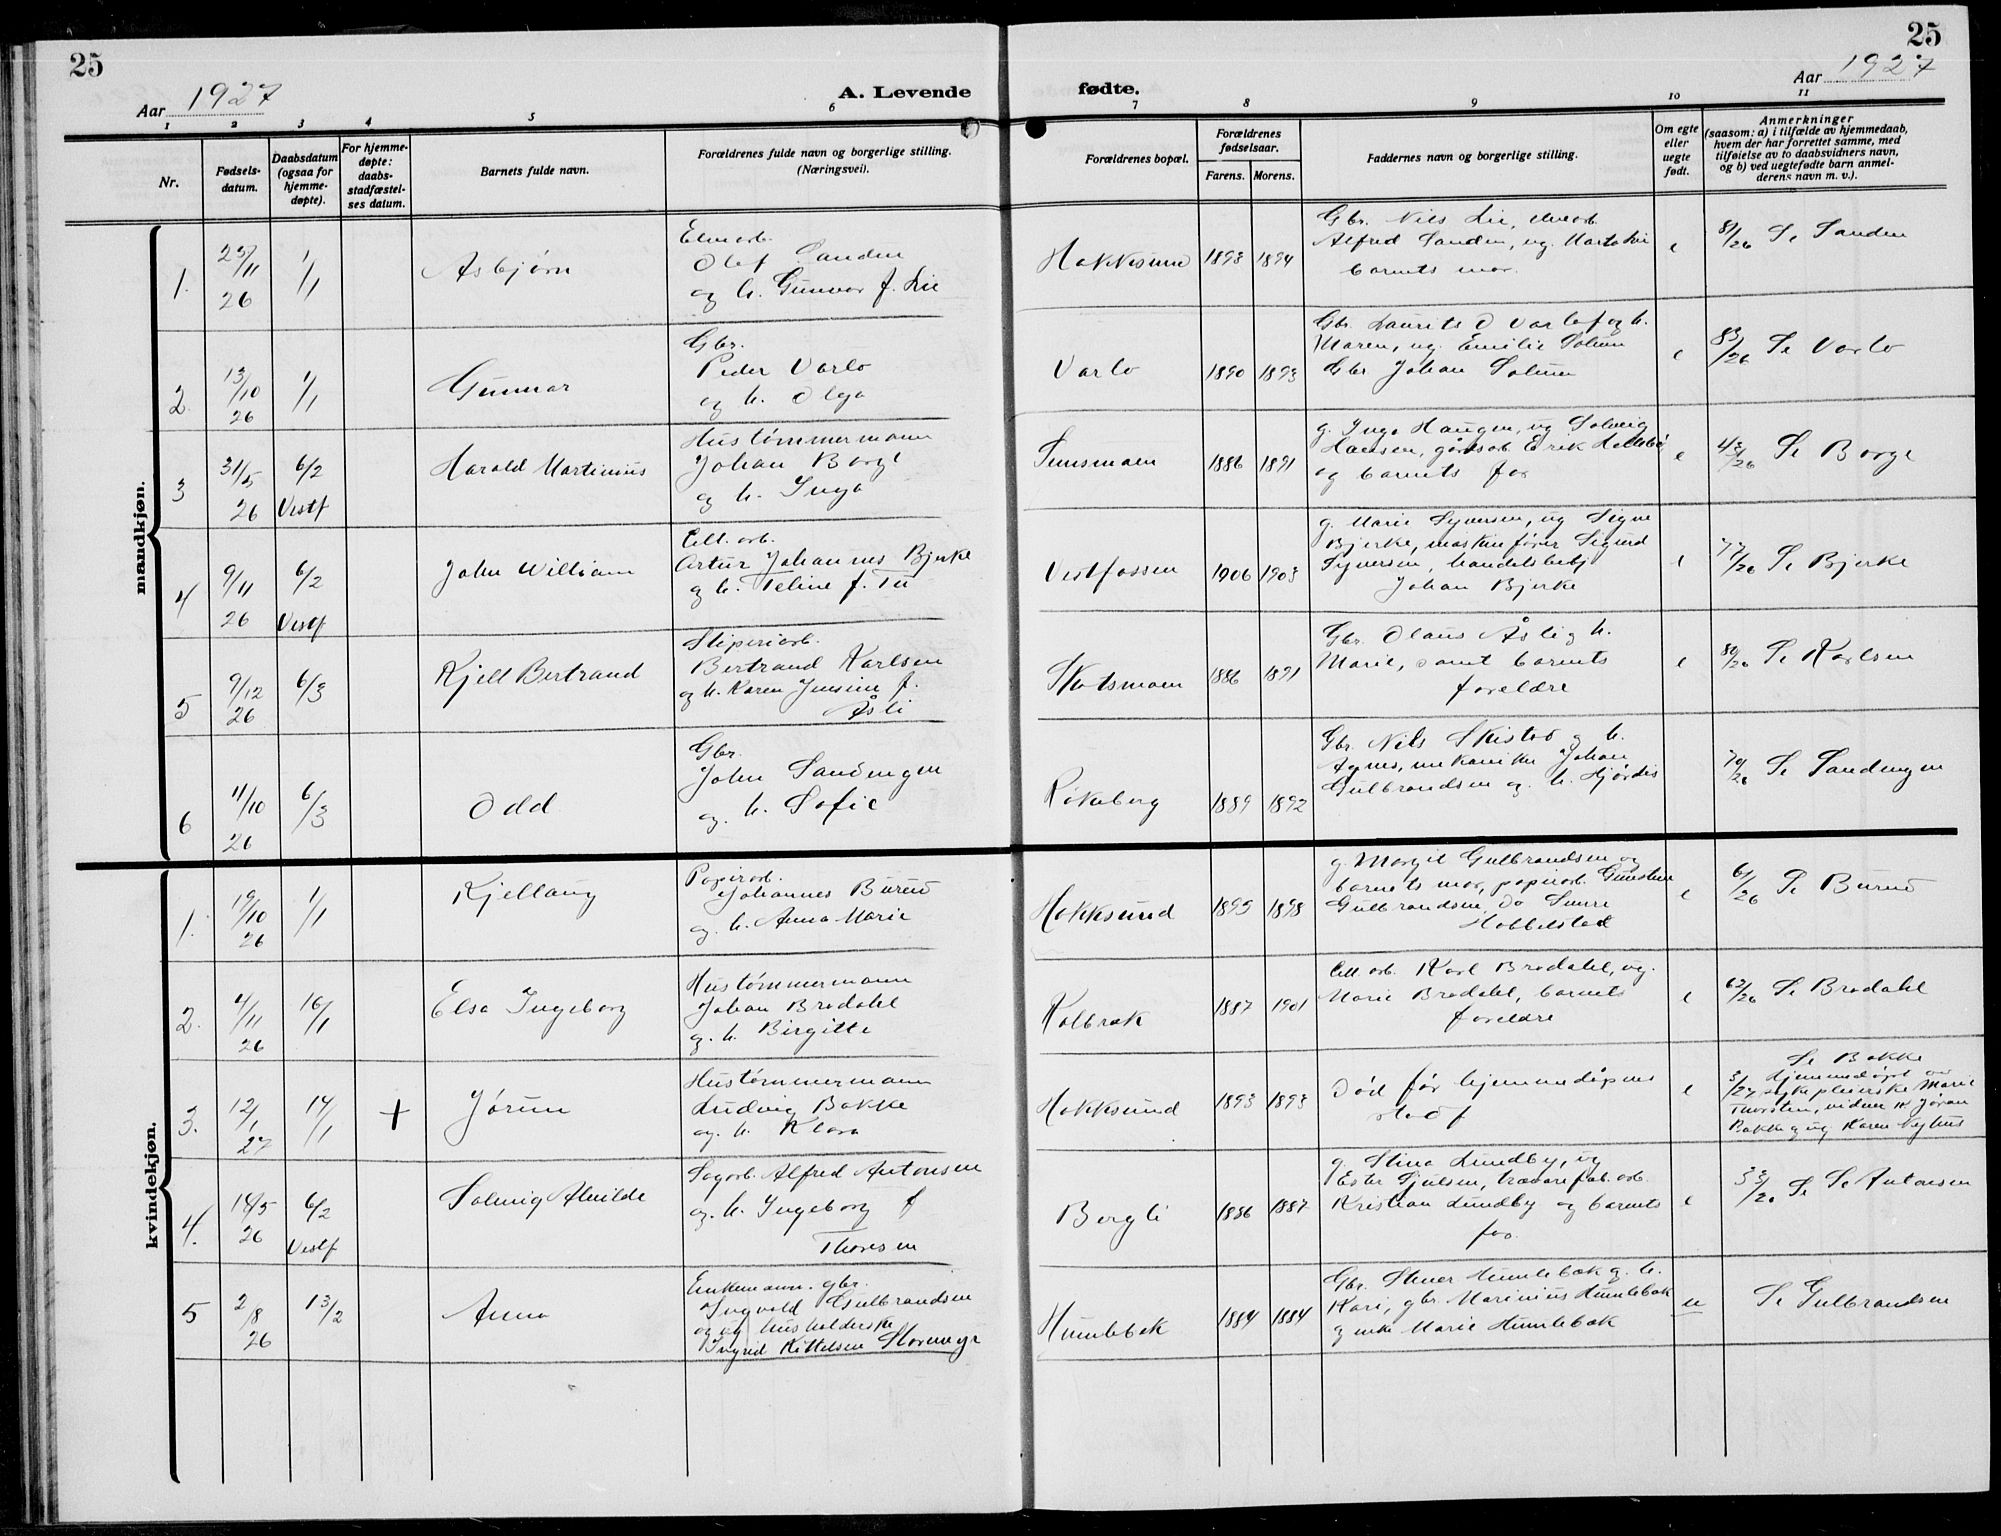 25
Aar 1927
A. Levende
1 2 3 4 5 6
Nr.
Fødsels-
datum.
Daabsdatum
(ogsaa for
hjemme-
døpte).
For hjemme-
døpte:
daabs-
stadfæstel-
ses datum.
Barnets fulde navn.
Forældrenes fulde navn og borgerlige stilling.
(Næringsvei).
mandkjøn.
1. 25/11 26 1/1 Asbjørn
Olaf Sanden
og h. Gunvor f. Lie
2. 13/10 26 1/1 Gunnar
Gbr.
Peder Varlo
og h. Olga
3 31/5 26 6/2 Vestf Harald Martinius
Hustømmermann
Johan Borge
og h. Inga
4 9/11 26 6/2 Vestf John William
Cell. arb.
Artur Johannes Bjerke
og h. Teline f. Tu
5 9/12 26 6/3 Kjell Bertrand
Sliperiarb.
Bertrand Karlsen
og h. Karen Jensine f.
Åsli
6 11/10 26 6/3 Odd
Gbr.
John Sandengen
og. h. Sofie
kvindekjøn.
1. 19/10 26 1/1 Kjellaug
Papirarb.
Johannes Burud
og. h. Anna Marie
2. 4/11 26 16/1 Elsa Ingeborg
Hustømmermann
Johan Bredahl
og. h. Birgitte
3. 12/1 27 14/1 + Jørun
Hustømmermann
Ludvig Bakke
og. h. Klara
4. 14/5 26 6/2 Vestf Solveig Alvilde
Sagarb. Alfred Antonsen
og. h. Ingeborg f
Thoresen
5 2/8 26 13/2 Anna
Enkemann. gbr.
Ingvald Gulbrandsen
og ug husholderske
Ingrid Kittelsen Stormyr
25
Aar 1927
fødte.
7 8 9 10 11
Forældrenes bopæl.
Forældrenes
fødselsaar.
Farens. Morens.
Faddernes navn og borgerlige stilling.
Om egte
eller
uegte
født.
Anmerkninger
(saasom: a) i tilfælde av hjemmedaab,
hvem der har forrettet samme, med
tilføielse av to daabsvidners navn,
og b) ved uegtefødte barn anmel-
derens navn m. v.).
Hokksund 1893 1894
Gbr. Nils Lie,
Alfred Sanden, ug. Marta Lie
barnets mor.
e 81/26 Se Sanden
Varlo 1890 1893
Gbr. Laurits O Varlo og h.
Maren, ug. Emilie Solum
Gbr Johan Solum
e 83/26 Se Varlo
Semsmoen 1886 1891
g. Inga Haugen, ug Solveig
Hansen, gårdsarb Erik
og barnets far
e 43/26 Se Borge
Vestfossen 1906 1903
g. Marie Syversen, ug Signe
Bjerke, maskinfører Sigurd
Syversen, handelsbetj
Johan Bjerke
e 77/26 Se Bjerke
Skotsmoen 1886 1891
Gbr. Olaus Åsli og h.
Marie, samt barnets
foreldre
e 80/26 Se Karlsen
Røkeberg 1889 1892
Gbr. Nils Skistad og h.
Agnes, mekaniker Johan
Gulbrandsen og. h. Hjørdis
70/26 Se Sandengen
Hokksund 1895 1898
g. Margit Gulbrandsen og
barnets mor, papirarb. Gunstein
Gulbrandsen, Do
Hobbelstad
e 61/26 Se Burud
Kolbræk 1887 1901
Cell arb. Karl Bredahl, ug.
Marie Bredahl, barnets
foreldre
e 62/26 Se Bredahl
Hokksund 1893 1893
Død før hjemmedåpens
stadf
e 3/27 Se Bakke
Hjemmedøpt av
sykepleierske Marie
Thorsten, vidner fr Jøran
Bakke og ug Karen Nyhus
Bergli 1886 1887
g. Stina Lundby, ug
Ester Sjulsen, trævarefab. arb.
Kristian Lundby og barnets
far.
e 33/26 Se Antonsen
Humlebæk 1884 1884
Gbr. Stener Humlebæk og. h.
Kari, gbr Marinius Humlebæk
og enke Marie Humlebæk
u Se Gulbrandsen